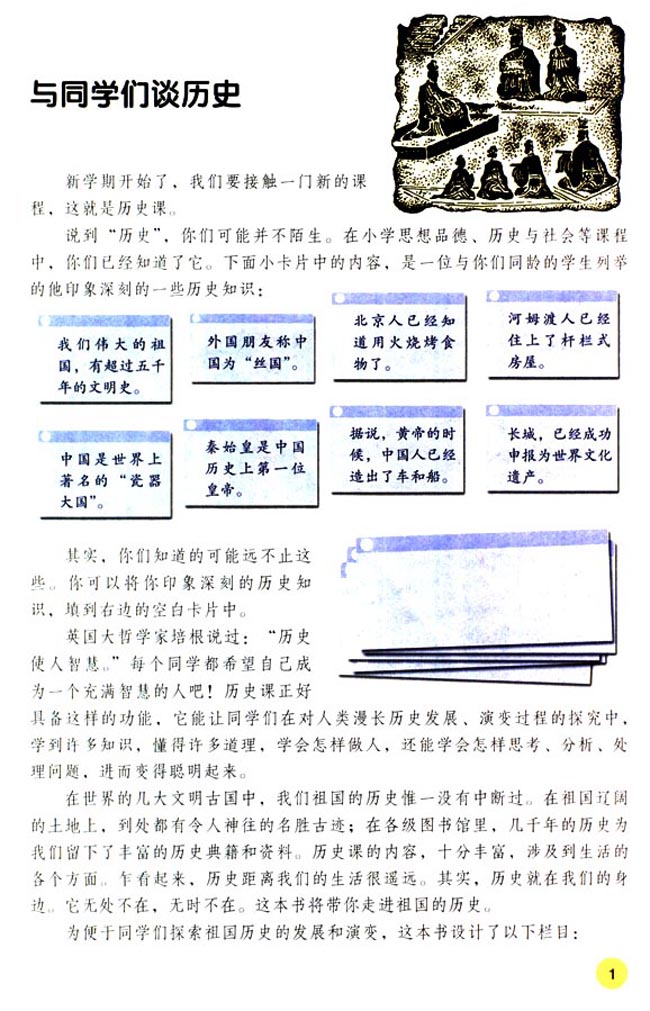 与同学们谈历史
新学期开始了，我们要接触一门新的课
程，这就是历史课。
说到“历史”，你们可能并不陌生。在小学思想品德、历史与社会等课程
中，你们已经知道了它。下面小卡片中的内容，是一位与你们同龄的学生列举
的他印象深刻的一些历史知识：
我们伟大的祖
国，有超过五千
年的文明史。
外国朋友称中
国为“丝国”。
北京人已经知
道用火烧烤食
物了。
河姆渡人已经
住上了杆栏式
房屋。
中国是世界上
著名的“瓷器
大国”。
秦始皇是中国
历史上第一位
皇帝。
据说，黄帝的时
候，中国人已经
造出了车和船。
长城，已经成功
申报为世界文化
遗产。
其实，你们知道的可能远不止这
些。你可以将你印象深刻的历史知
识，填到右边的空白卡片中。
英国大哲学家培根说过：“历史
使人智慧。”每个同学都希望自己成
为一个充满智慧的人吧！历史课正好
具备这样的功能，它能让同学们在对人类漫长历史发展、演变过程的探究中，
学到许多知识，懂得许多道理，学会怎样做人，还能学会怎样思考、分析、处
理问题，进而变得聪明起来。
在世界的几大文明古国中，我们祖国的历史惟一没有中断过。在祖国辽阔
的土地上，到处都有令人神往的名胜古迹；在各级图书馆里，几千年的历史为
我们留下了丰富的历史典籍和资料。历史课的内容，十分丰富，涉及到生活的
各个方面。乍看起来，历史距离我们的生活很遥远。其实，历史就在我们的身
边。它无处不在，无时不在。这本书将带你走进祖国的历史。
为便于同学们探索祖国历史的发展和演变，这本书设计了以下栏目：
1